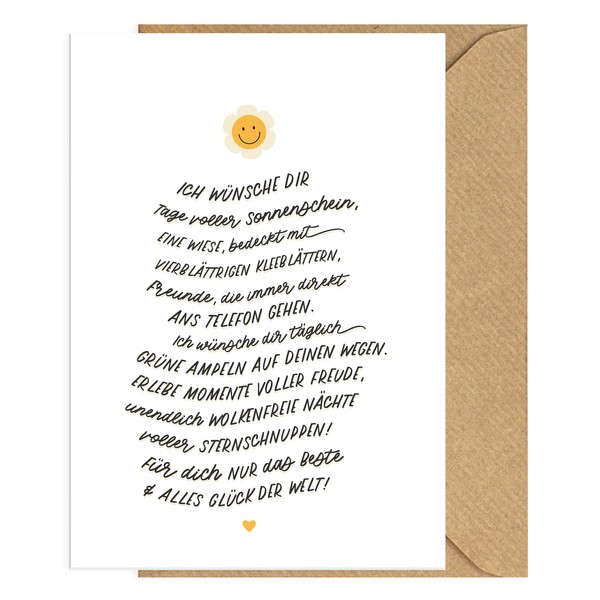 ICH WÜNSCHE DIR
Tage voller Sonnenschein,
EINE WIESE, bedeckt mit
VIERBLÄTTRIGEN KLEEBLÄTTERN,
Freunde, die immer direkt
ANS TELEFON GEHEN.
Ich wünsche dir täglich
GRÜNE AMPELN AUF DEINEN WEGEN.
ERLEBE MOMENTE VOLLER FREUDE,
unendlich WOLKENFREIE NÄCHTE
voller STERNSCHNUPPEN!
Für dich NUR das Beste
& ALLES GLÜCK DER WELT!